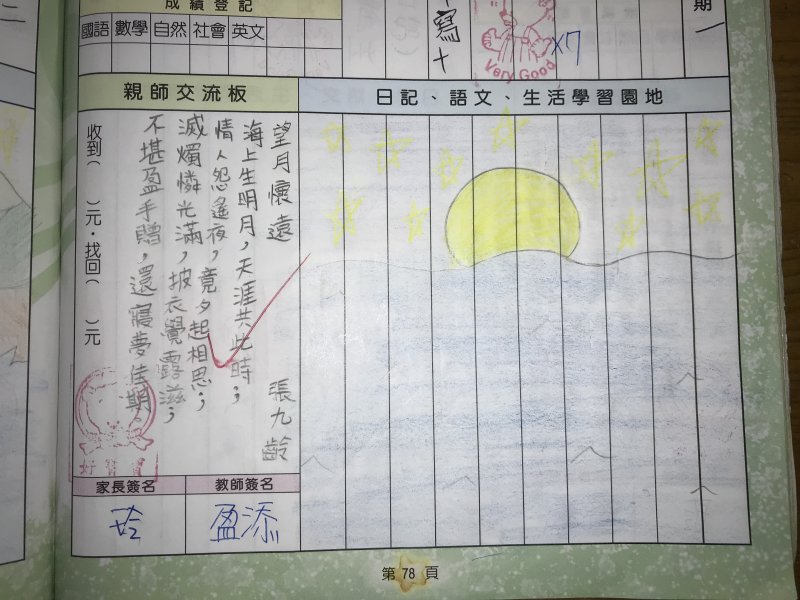 成績登記
國語 數學 自然 社會 英文
寫十
期一
二
Very Good
x7
親師交流板
日記、語文、生活學習園地
收到( )元・找回( )元
望月懷遠
張九齡
海上生明月,天涯共此時;
情人怨遙夜,竟夕起相思;
滅燭憐光滿,披衣覺露滋;
不堪盈手贈,還寢夢佳期
家長簽名
教師簽名
盈添
第 78 頁